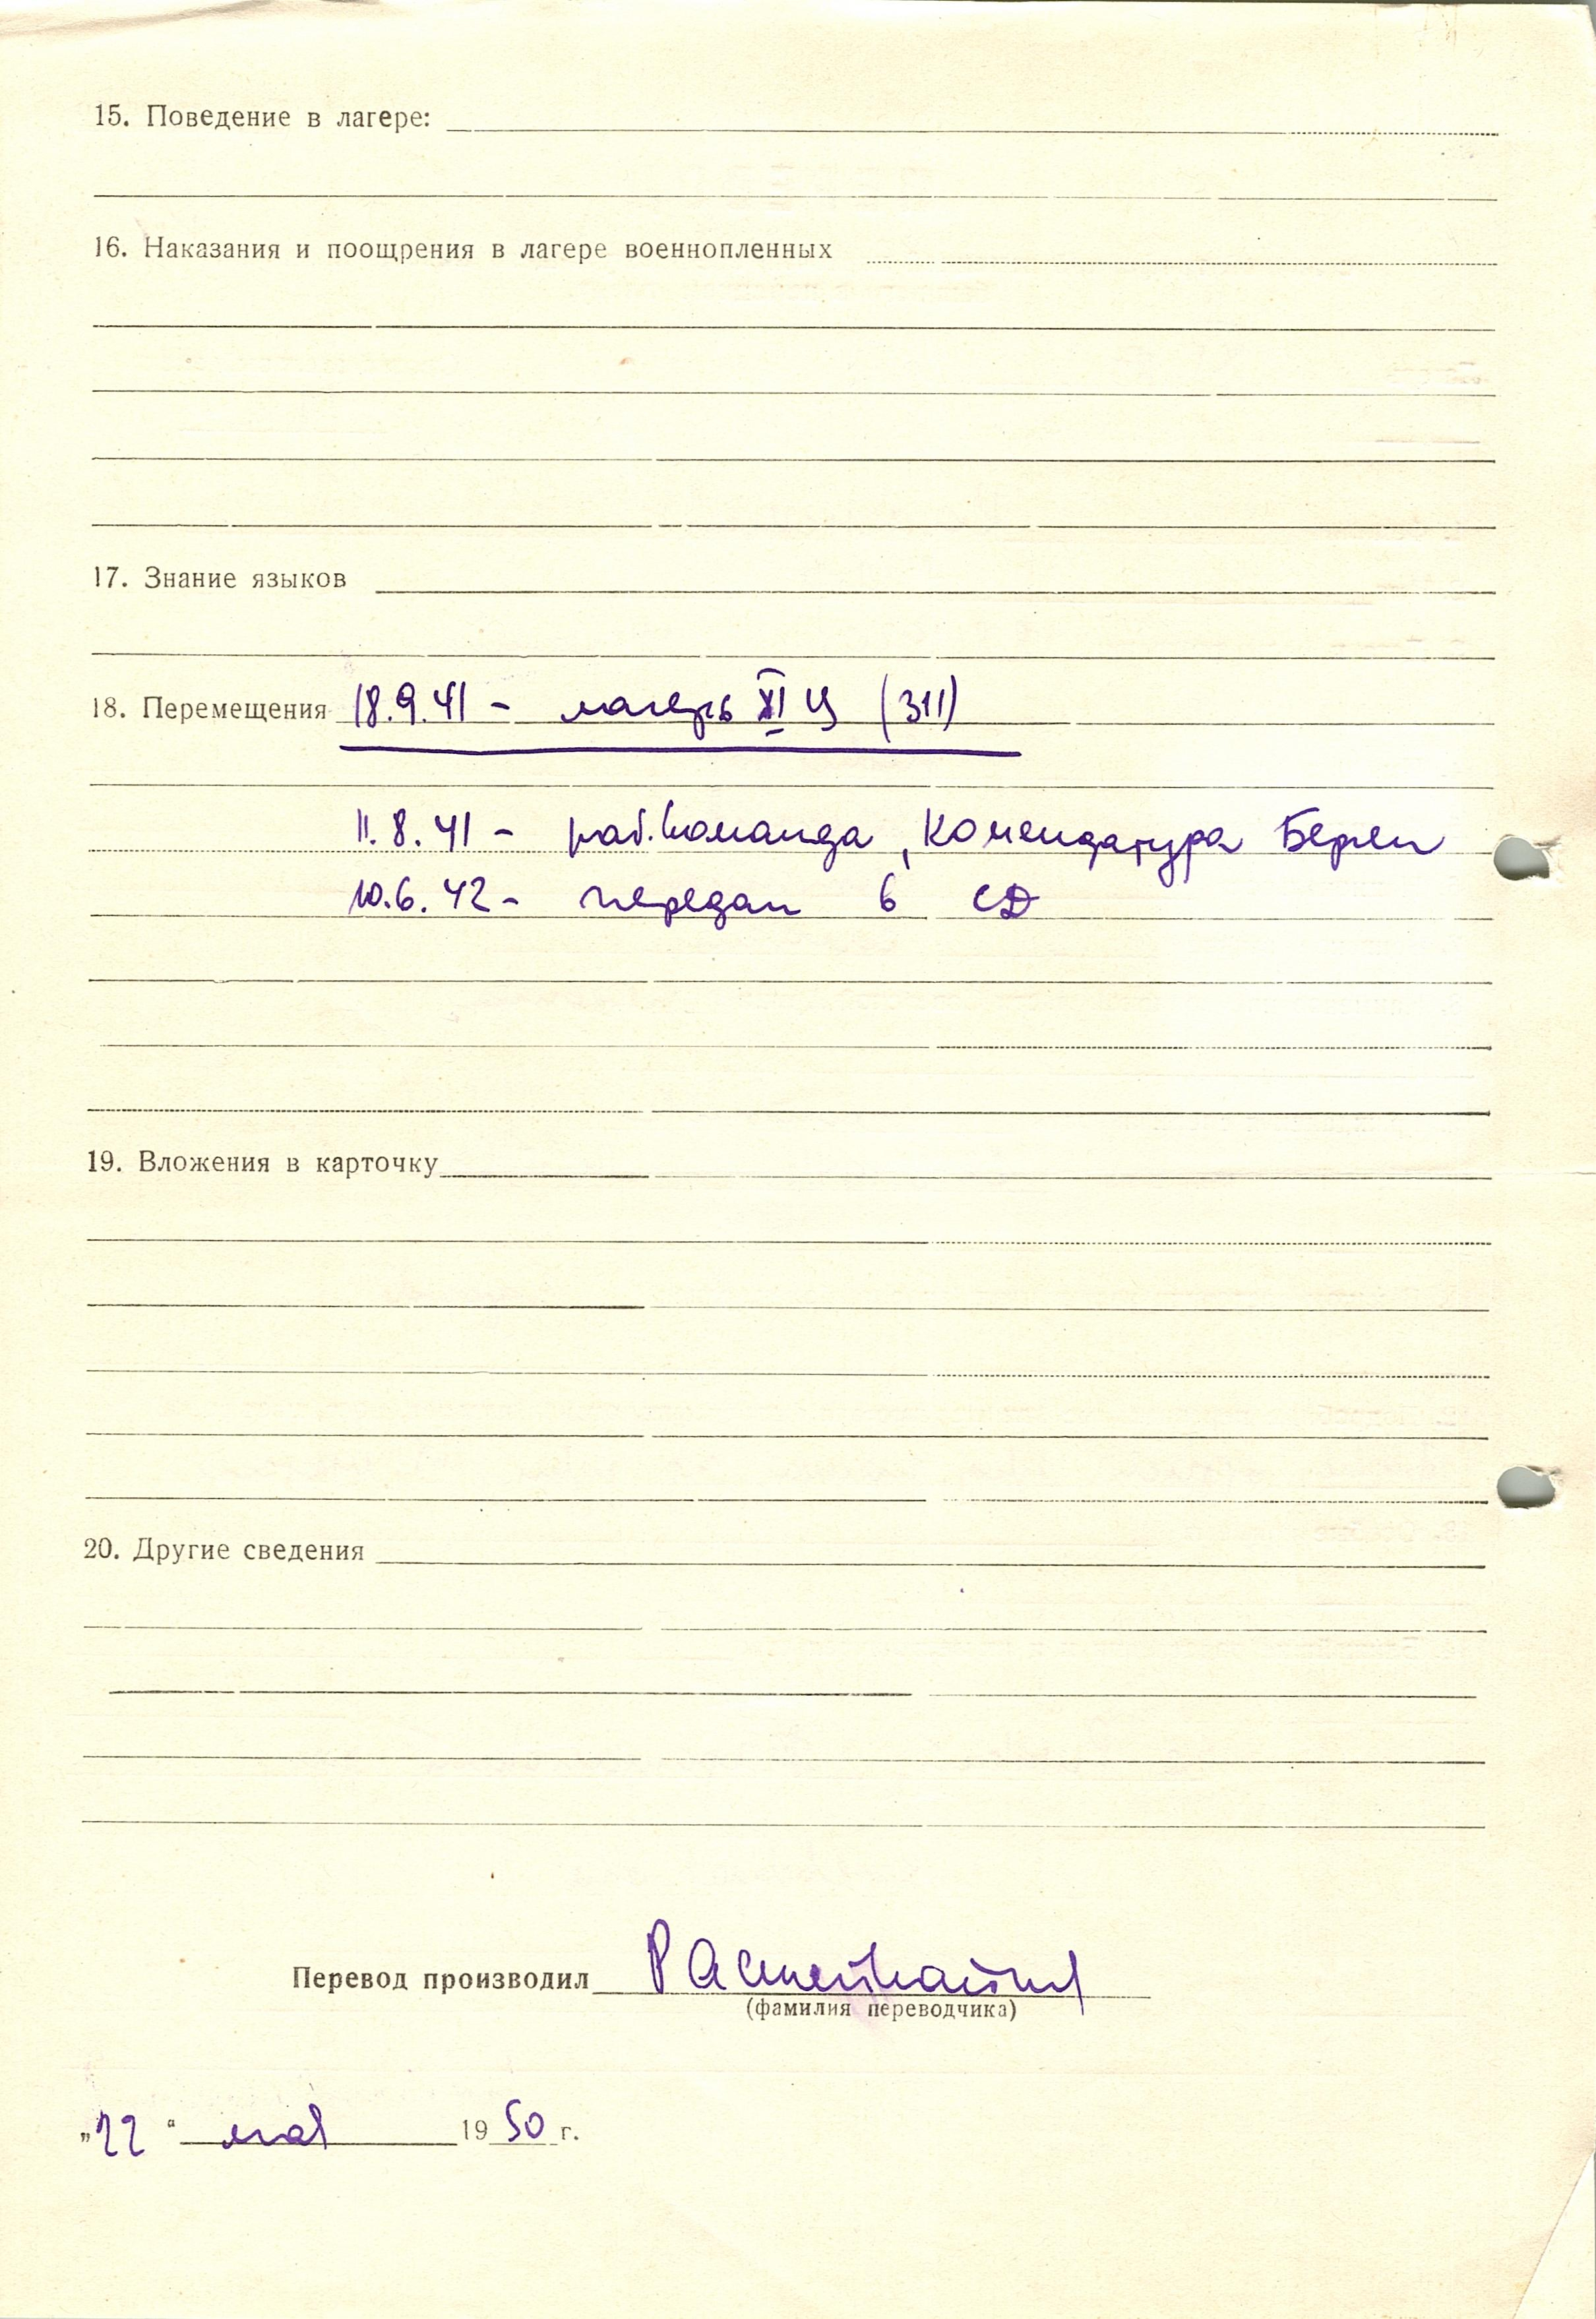 15. Поведение в лагере:
16. Наказания и поощрения в лагере военнопленных
17. Знание языков
18. Перемещения 18.9.41 - лагерь XI Ц (311)
11.8.41 - раб.команда, Комендатура Берген
10.6.42 - передан в СД
19. Вложения в карточку
20. Другие сведения
Перевод производил
(фамилия переводчика)
„22“ мая 1950 г.